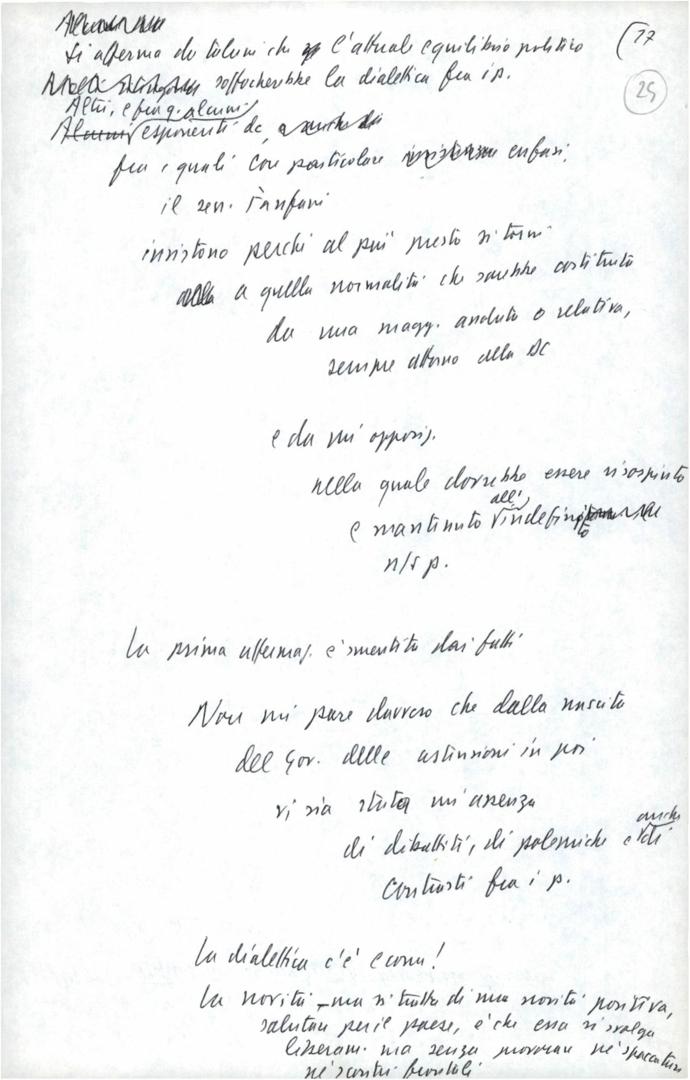 (17
25
Si afferma da taluni che l'attuale equilibrio politico
soffocherebbe la dialettica fra i p.
Altri, e fra q. alcuni
Alcuni esponenti dc,
fra i quali con particolare enfasi,
il sen. Fanfani
insistono perché al più presto si torni
alla a quella normalità che sarebbe costituita
da una magg. assoluta o relativa,
sempre attorno alla DC
e da un'opposiz.
nella quale dovrebbe essere risospinto
all'
e mantenuto indefinito
n/s p.
La prima affermaz. è smentita dai fatti
Non mi pare davvero che dalla nascita
del Gov. delle astensioni in poi
vi sia stata un'assenza
di dibattiti, di polemiche e anche di
contrasti fra i p.
La dialettica c'è e come!
La novità - ma si tratta di una novità positiva,
salutare per il paese, è che essa si svolga
liberam. ma senza provocare né spaccature
né scontri frontali